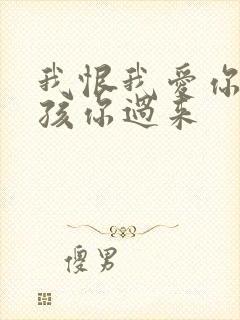 我恨我爱你
孩你过来
傻男